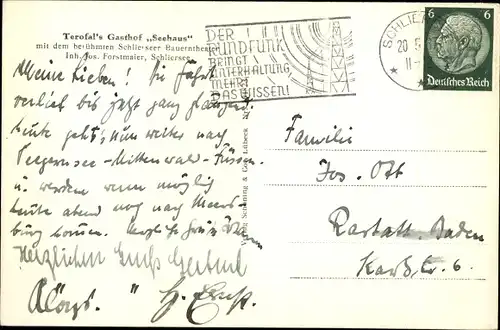 Terofal's Gasthof „Seehaus"
mit dem berühmten Schlierseer Bauerntheater
Inh. Jos. Forstmaier, Schliersee
DER
RUNDFUNK
BRINGT
UNTERHALTUNG
MEHRT
DAS WISSEN!
SCHLIE
20. 5.
11-
6 6
Deutsches Reich
Meine Lieben! Die Fahrt
verlief bis jetzt ganz
Heute geht's nun weiter nach
Tegernsee - Mittenwald - Füssen
u. werden wenn möglich
heute abend noch nach Meers-
burg kommen. Herzliche Grüße
Herzlichen Gruß Gertrud
Aloys. " H. Ernst.
Schöning & Co., Lübeck
Familie
Jos. Ott
Rastatt. Baden
Karlstr. 6.